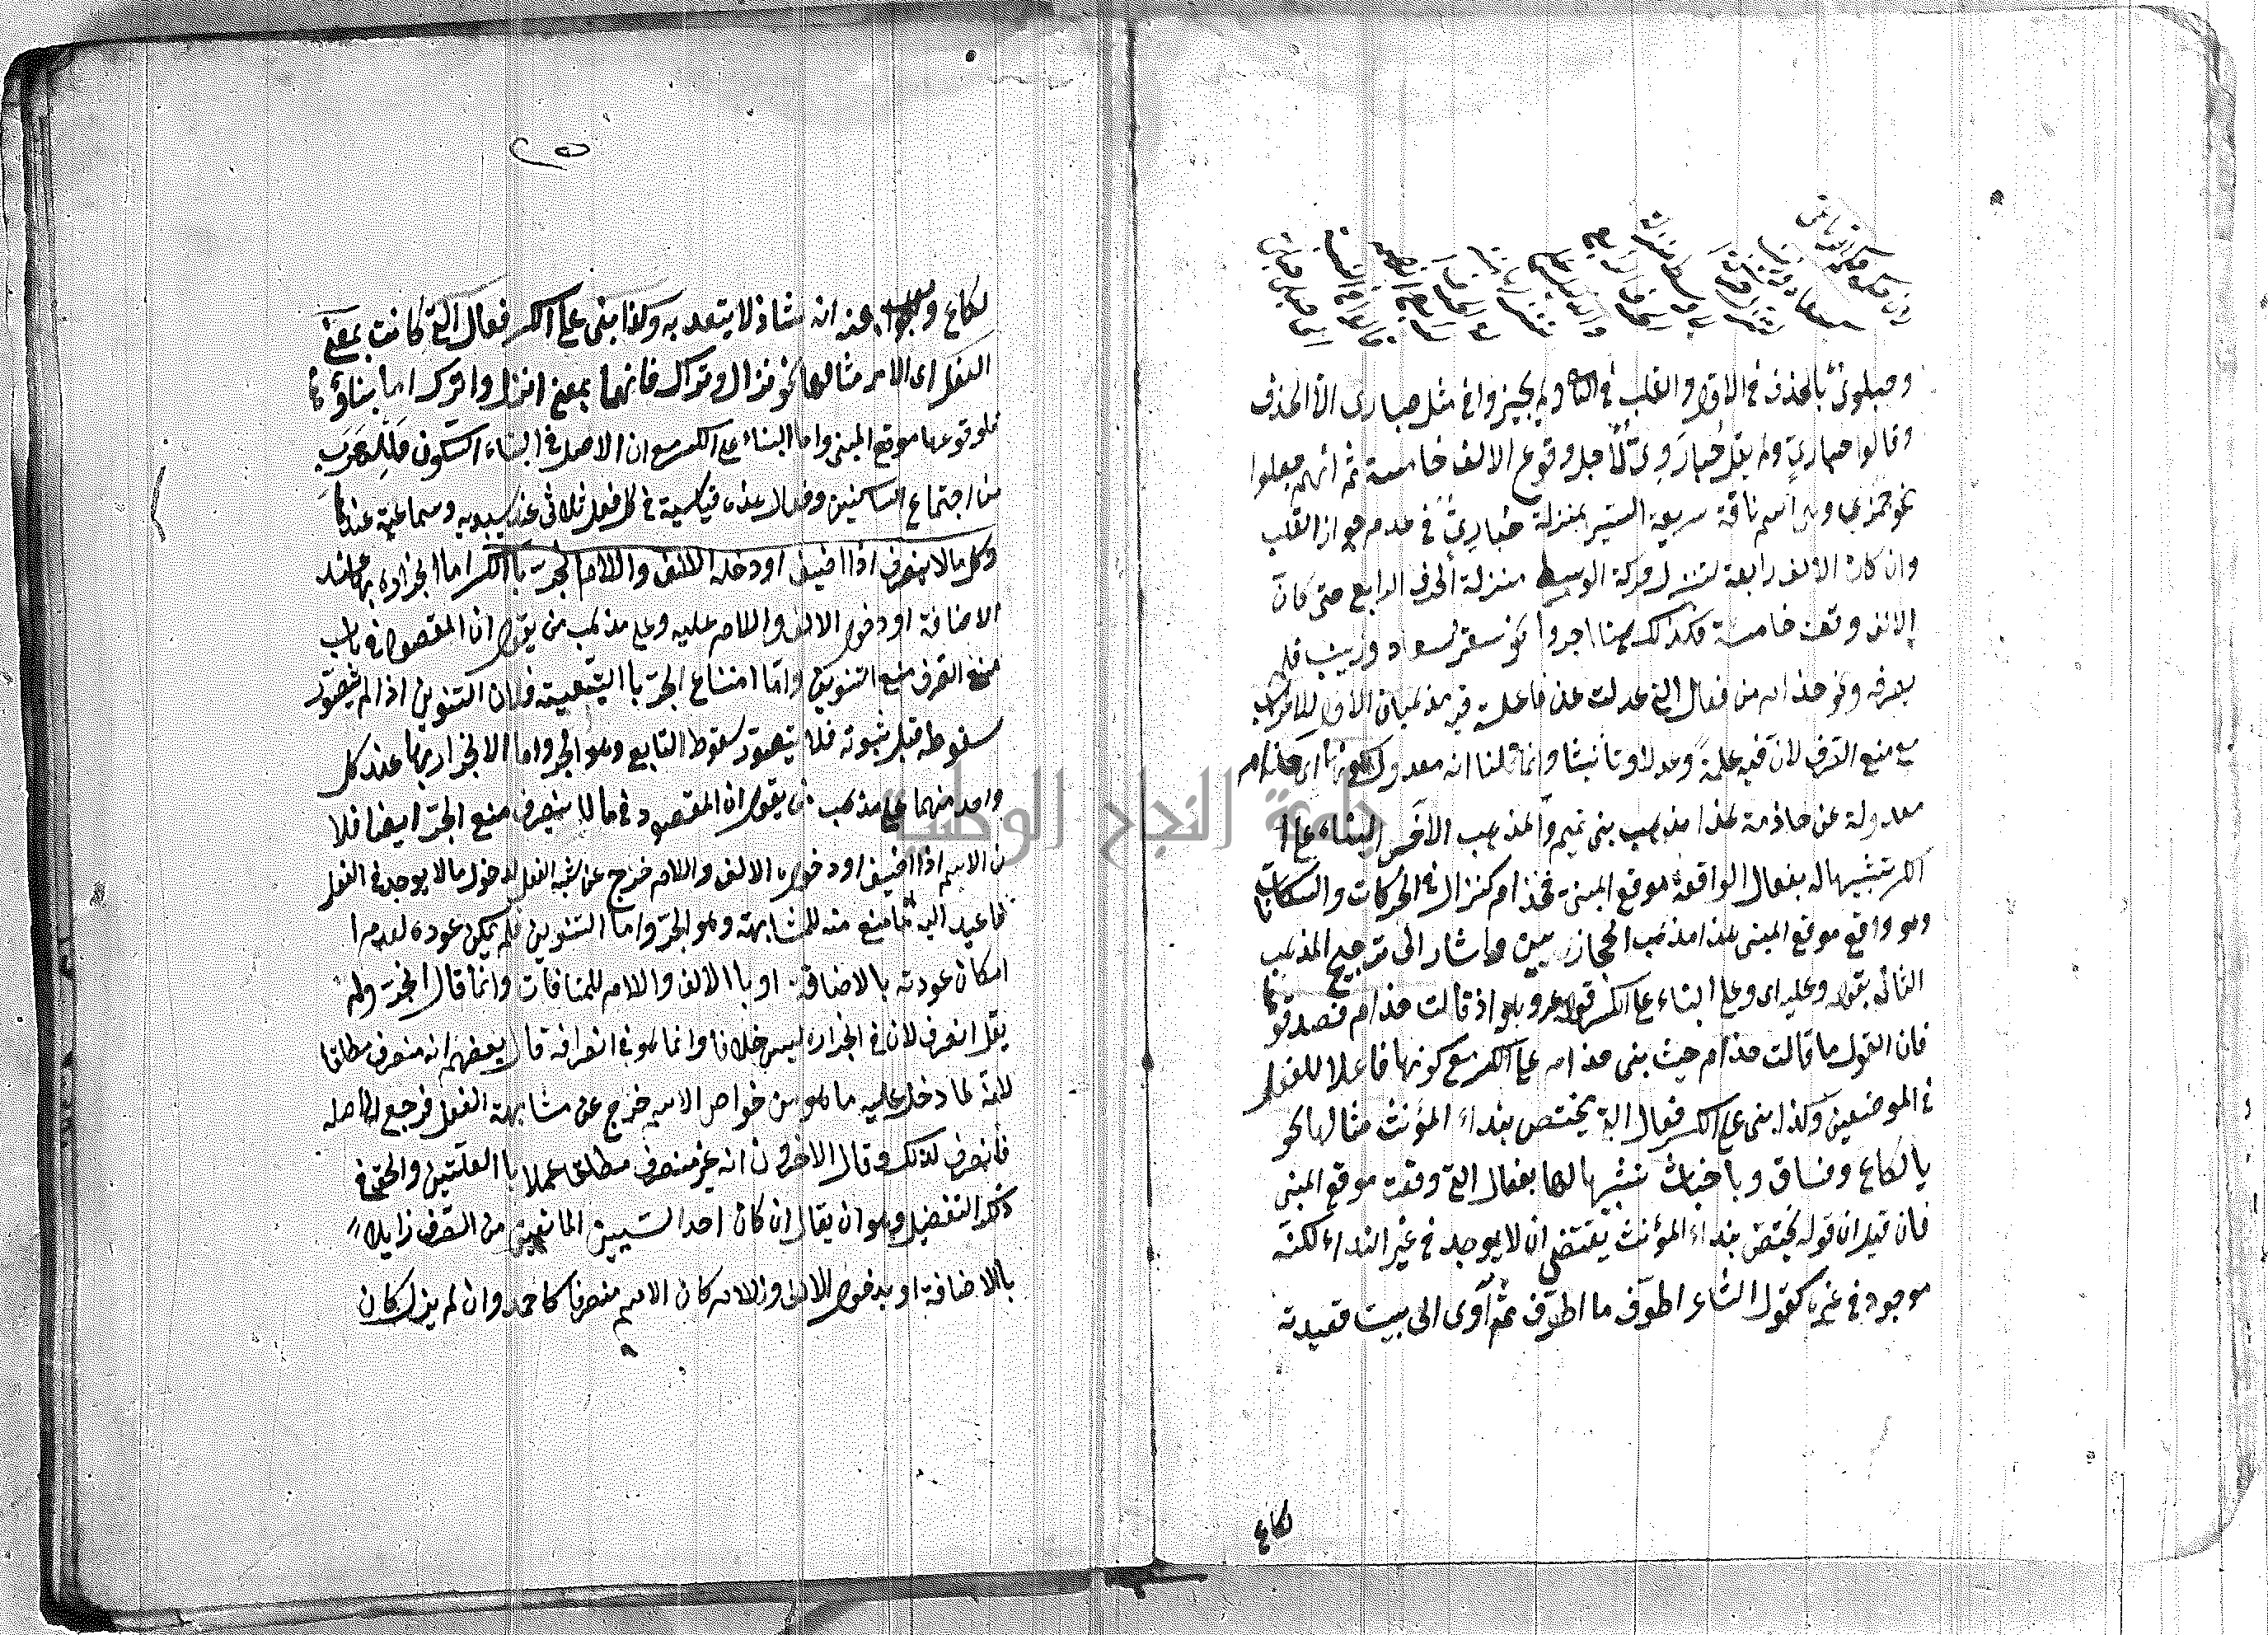 وحبلوىّ بالحذف في الاول والقلب في الثا ولم يجيزوا في مثل حبارى الا الحذف
وقالوا حباريّ ولم يقل حُبارَويّ لاجل وقوع الالف خامسة ثم انهم جعلوا
نحو جمزى وهي اسم ناقة سريعة السير بمنزلة حباريّ في عدم جواز القلب
وان كان الالف رابعة لتنزل حركة الوسط منزلة الحرف الرابع حتى كان
الالف وقعت خامسة فكذلك ههنا اجروا نحو سقر لسعاد وزينب فلم
يصرفه ونحو حذام من فعال التي عدلت عن فاعلة فيه مذهبان الاول الاعراب
مع منع الصرف لان فيه علمية وعدلا وتأنيثا وانما قلنا انه معدول لكونها اى حذام
معدولة عن حاذمة هذا مذهب بنى تميم والمذهب الآخر البناء على ا
الكسر تشبيها له بفعال الواقعة موقع المبنى فحذام كنزال في الحركات والسكنات
وهو واقع موقع المبنى هذا مذهب الحجازيين واشار الى ترجيح المذهب
الثانى بقوله وعليه اى وعلى البناء على الكسر قوله وهو اذ قالت حذام فصدقوها
فان القول ما قالت حذام حيث بنى حذام على الكسر مع كونها فاعلا للفعل
في الموضعين وكذا بنى على الكسر فعال التي يختص بنداء المؤنث مثالها نحو
يا لكاع وفساق ويا خباث تشبيها لها بفعال التي وقعت موقع المبنى
فان قيل ان قوله يختص بنداء المؤنث يقتضى ان لا يوجد في غير النداء لكنه
موجود في غيره كقول الشاعر اطوّف ما اطوّف ثم آوى الى بيت قعيدته
لكاع
لكاع وجوابه عنه انه شاذ لا يتعد به وكذا بنى على الكسر فعال التي كانت بمعنى
الفعل اى الامر مثالها نحو نزال وتراك فانهما بمعنى انزل واترك اما بناؤها
فلوقوعها موقع المبنى واما البناء على الكسر مع ان الاصل في البناء السكون فللهرب
من اجتماع الساكنين وفعال هذه قياسية في كل فعل ثلاثى عند سيبويه وسماعية عند
وكل ما لا ينصرف اذا اضيف او دخله الالف واللام انجرّ بالكسر اما انجراره بها عند
الاضافة او دخول الالف واللام عليه وعلى مذهب من يقول ان المقصود في باب
منع الصرف منع التنوين واما امتناع الجرّ با التبعية فلان التنوين اذا لم يتصور
سقوطه قبل ثبوته فلا يتصور سقوط التابع وهو الجر واما الانجرار بهما عند كل
واحد منهما على مذهب من يقول ان المقصود في ما لا ينصرف منع الجرّ ايضا فلا
ن الاسم اذا اضيف او دخوله الالف واللام خرج عن شبه الفعل لدخول ما لا يوجد في الفعل
فاعيد اليه ما منع منه للمشابهة وهو الجرّ واما التنوين فلم يمكن عوده لعدم ا
امكان عودته بالاضافة او با الالف والام للمنافات وانما قال انجرّ ولم
يقل انصرف لان في انجراره ليس خلافا وانما هو في انصرافه قال بعضهم انه منصرف مطلقا
لانه لما دخل عليه ما هو من خواص الاسم خرج عن مشابهة الفعل فرجع الى اصله
فانصرف لذلك وقال الاخرون انه غير منصرف مطلق عملا با العلتين والحق في
ذلك التفصيل وهو ان يقال ان كان احد السببين المانعين من الصرف زايلا
بالاضافة او بدخول الالف واللام كان الاسم منصرفا كاحمد وان لم يزل كان
جامعة النجاح الوطنية